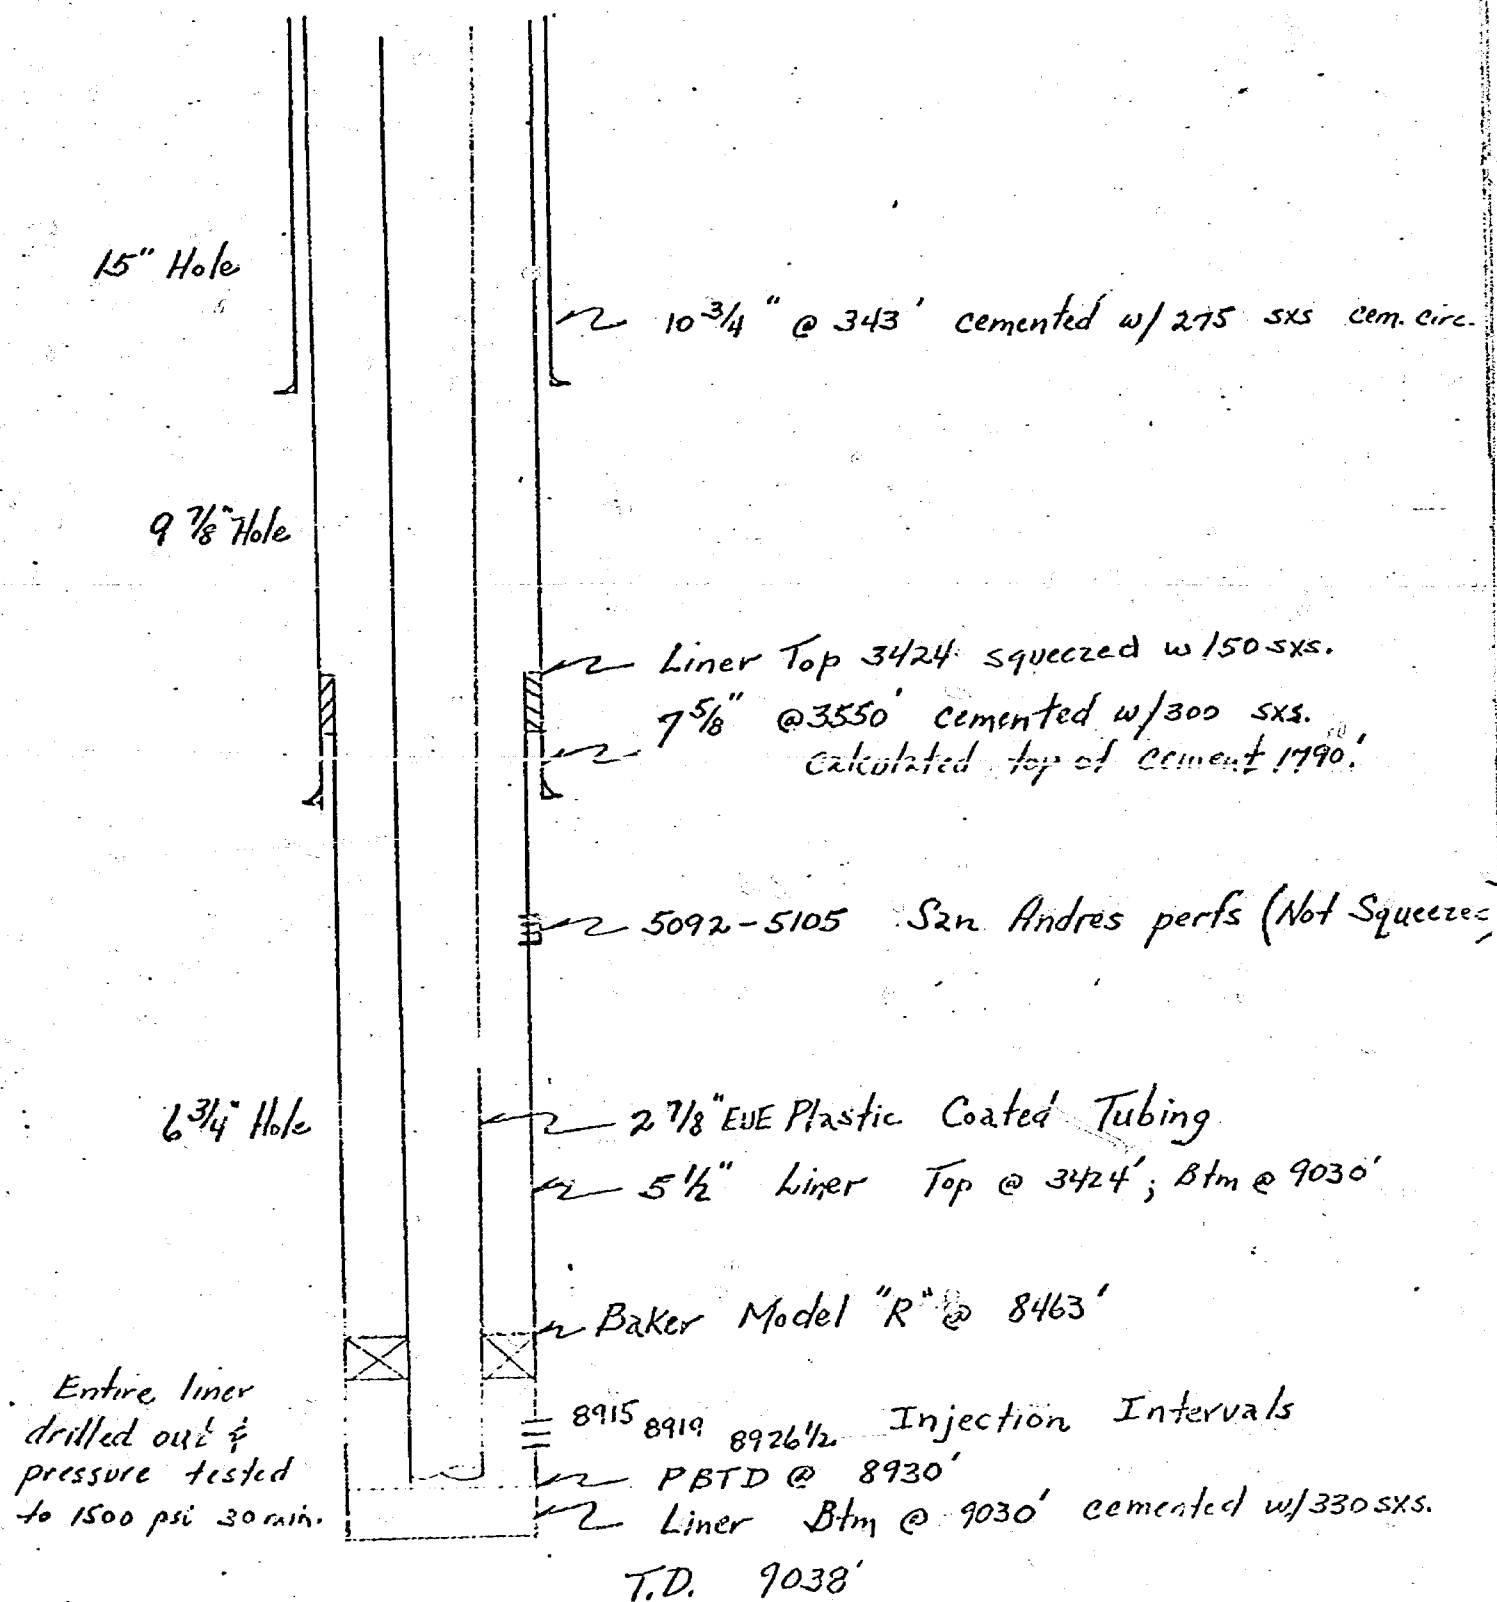 15" Hole
10 3/4" @ 343' cemented w/ 275 sxs cem. circ.
9 7/8" Hole
Liner Top 3424 squeezed w/150 sxs.
7 5/8" @3550' cemented w/300 sxs.
calculated top of cement 1790'.
5092-5105 San Andres perfs (Not Squeezed
6 3/4" Hole
2 7/8" EUE Plastic Coated Tubing
5 1/2" Liner Top @ 3424'; Btm @ 9030'
Baker Model "R" @ 8463'
Entire liner
drilled out &
pressure tested
to 1500 psi 30 min.
8915 8919 8926 1/2 Injection Intervals
PBTD @ 8930'
Liner Btm @ 9030' cemented w/330 sxs.
T.D. 9038'